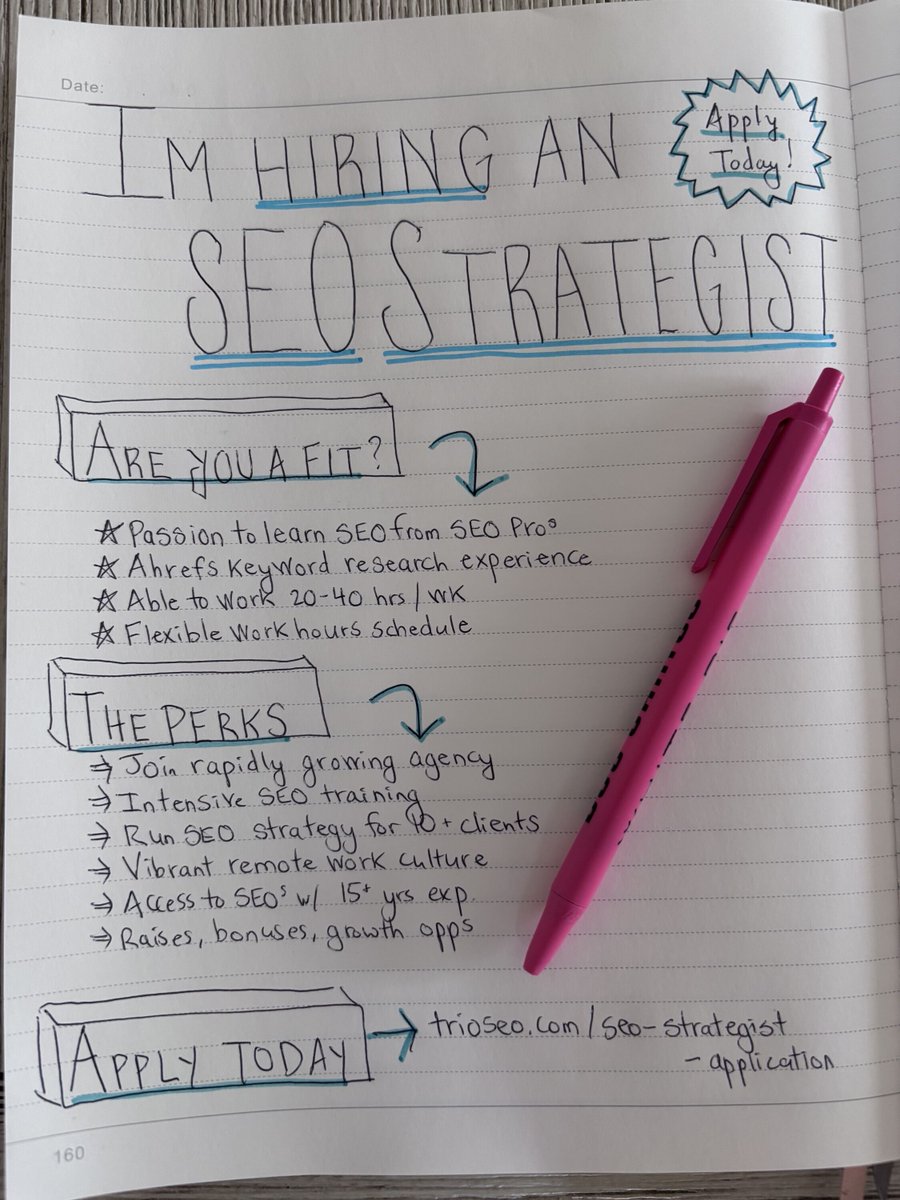 Date:
IM HIRING AN
Apply
Today!
SEO STRATEGIST
ARE YOU A FIT?
Passion to learn SEO from SEO Pros
Ahrefs Keyword research experience
Able to work 20-40 hrs/wk
Flexible work hours schedule
THE PERKS
Join rapidly growing agency
Intensive SEO training
Run SEO strategy for 10+ clients
Vibrant remote work culture
Access to SEOs w/ 15+ yrs exp.
Raises, bonuses, growth opps
APPLY TODAY
trioseo.com/seo-strategist
-application
160